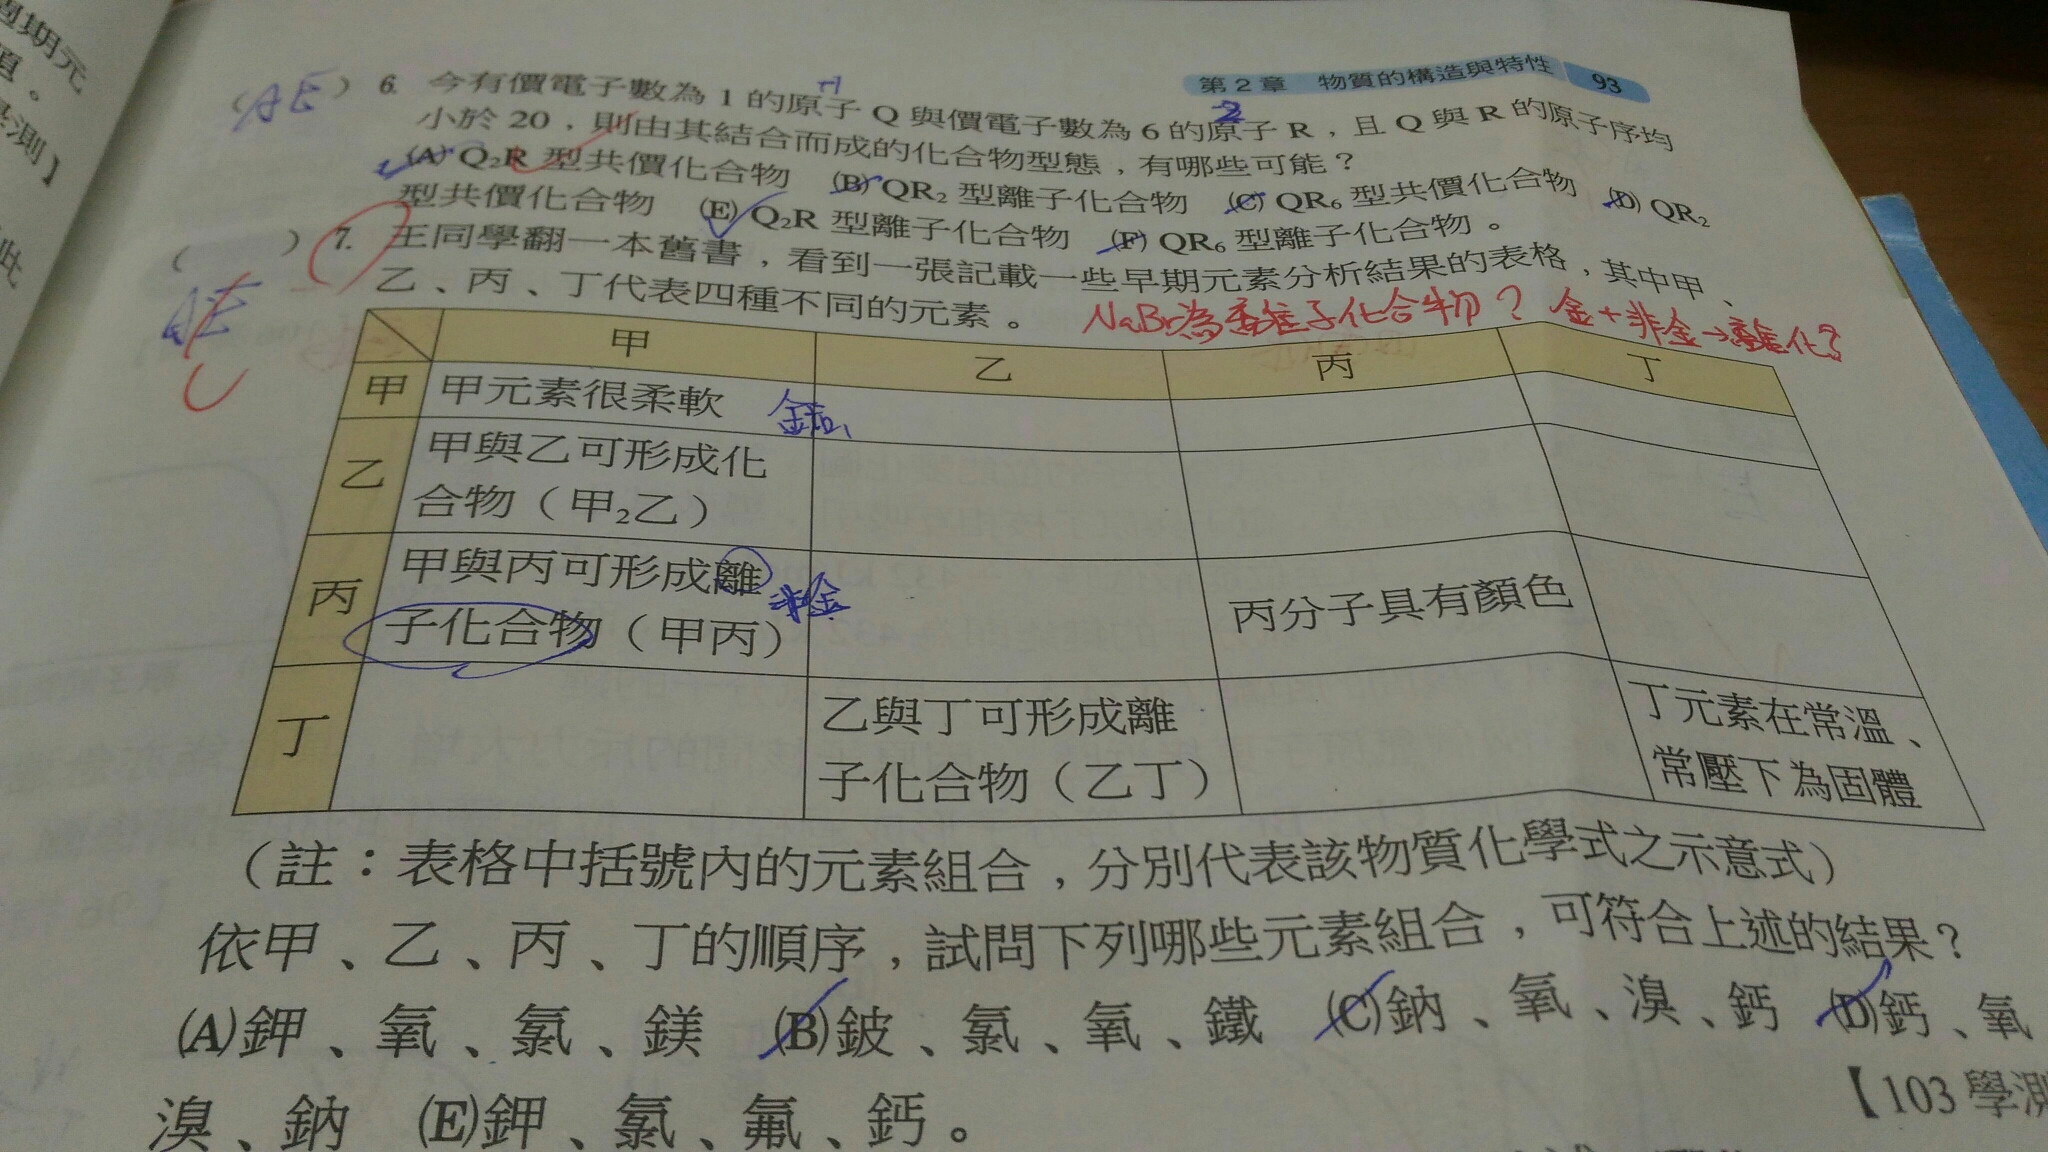 週期元
第2章 物質的構造與特性 93
(AE) 6. 今有價電子數為1的原子Q與價電子數為6的原子R,且Q與R的原子序均
+1
2
小於20,則由其結合而成的化合物型態,有哪些可能?
(A) Q₂R 型共價化合物 (B) QR₂ 型離子化合物 (C) QR₆ 型共價化合物 (D) QR₂
型共價化合物 (E) Q₂R 型離子化合物 (F) QR₆ 型離子化合物。
( ) 7. 王同學翻一本舊書,看到一張記載一些早期元素分析結果的表格,其中甲、
AE
C
乙、丙、丁代表四種不同的元素。
NaBr為離子化合物? 金+非金→離化?
甲 乙 丙 丁
甲 甲元素很柔軟
乙 甲與乙可形成化
合物(甲₂乙)
丙 甲與丙可形成離 非金
子化合物(甲丙) 丙分子具有顏色
丁 乙與丁可形成離 丁元素在常溫、
子化合物(乙丁) 常壓下為固體
(註:表格中括號內的元素組合,分別代表該物質化學式之示意式)
依甲、乙、丙、丁的順序,試問下列哪些元素組合,可符合上述的結果?
(A)鉀、氧、氯、鎂 (B)鈹、氯、氧、鐵 (C)鈉、氧、溴、鈣 (D)鈣、氧
溴、鈉 (E)鉀、氯、氟、鈣。
【103 學測